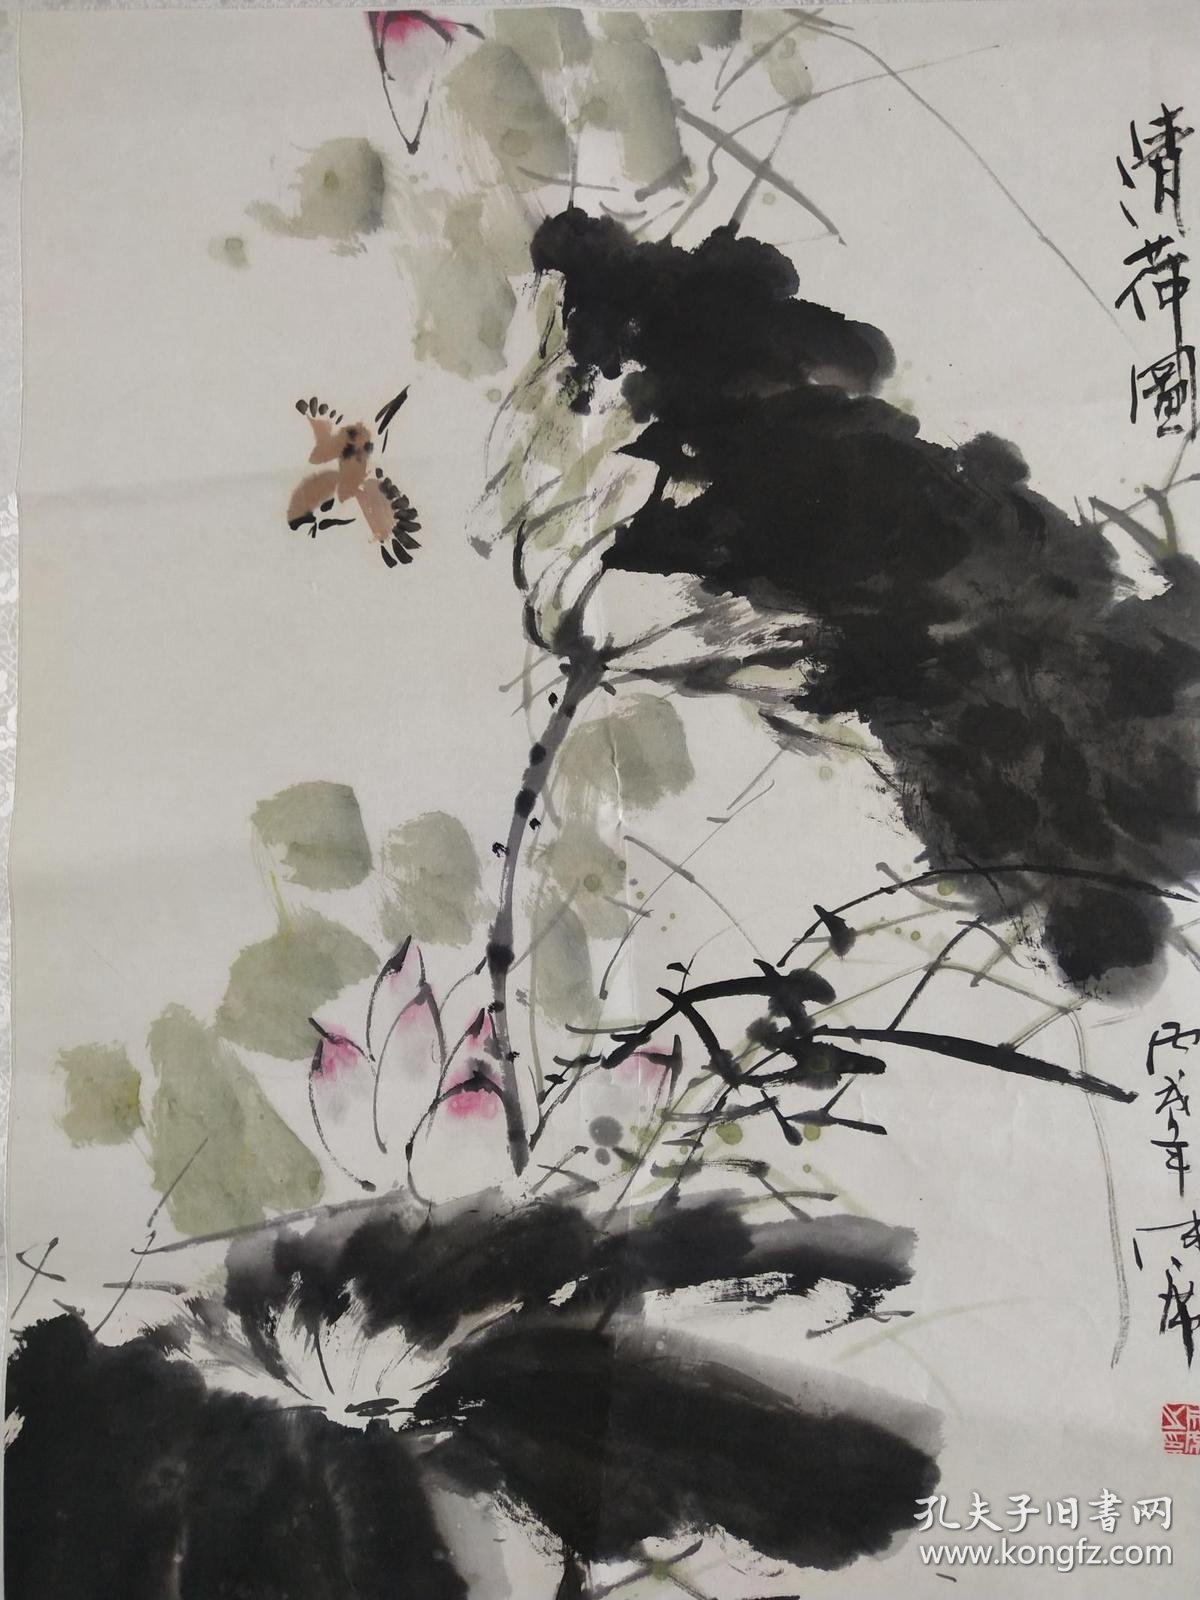 清荷圖
丙戌年
孔夫子旧书网
www.kongfz.com